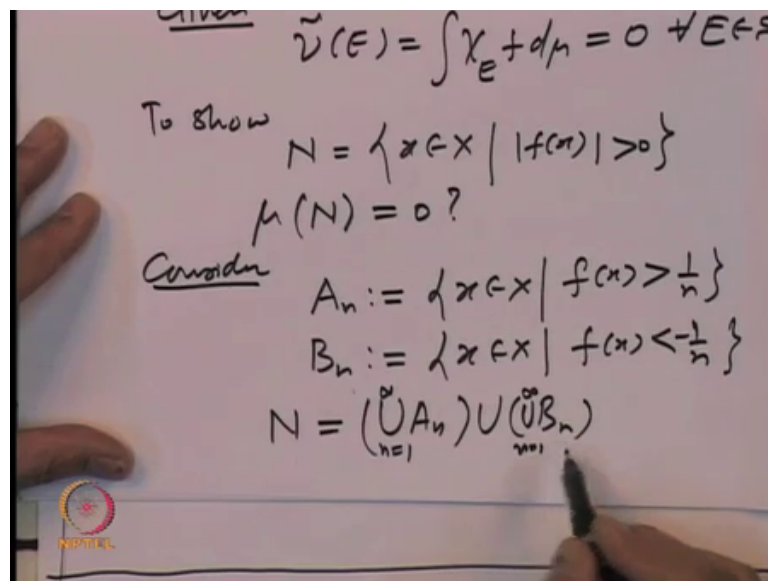 Given
ṽ(E) = ∫ χ_E f dμ = 0 ∀ E ∈ S
To show
N = {x ∈ X | |f(x)| > 0}
μ(N) = 0 ?
Consider
A_n := {x ∈ X | f(x) > 1/n}
B_n := {x ∈ X | f(x) < -1/n}
N = (⋃_{n=1}^∞ A_n) ∪ (⋃_{n=1}^∞ B_n)
NPTEL